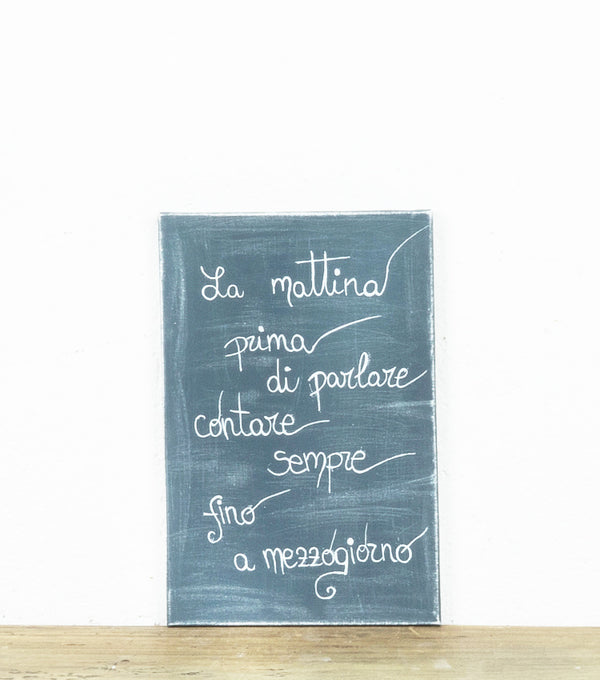 La mattina
prima
di parlare
contare
sempre
fino
a mezzogiorno